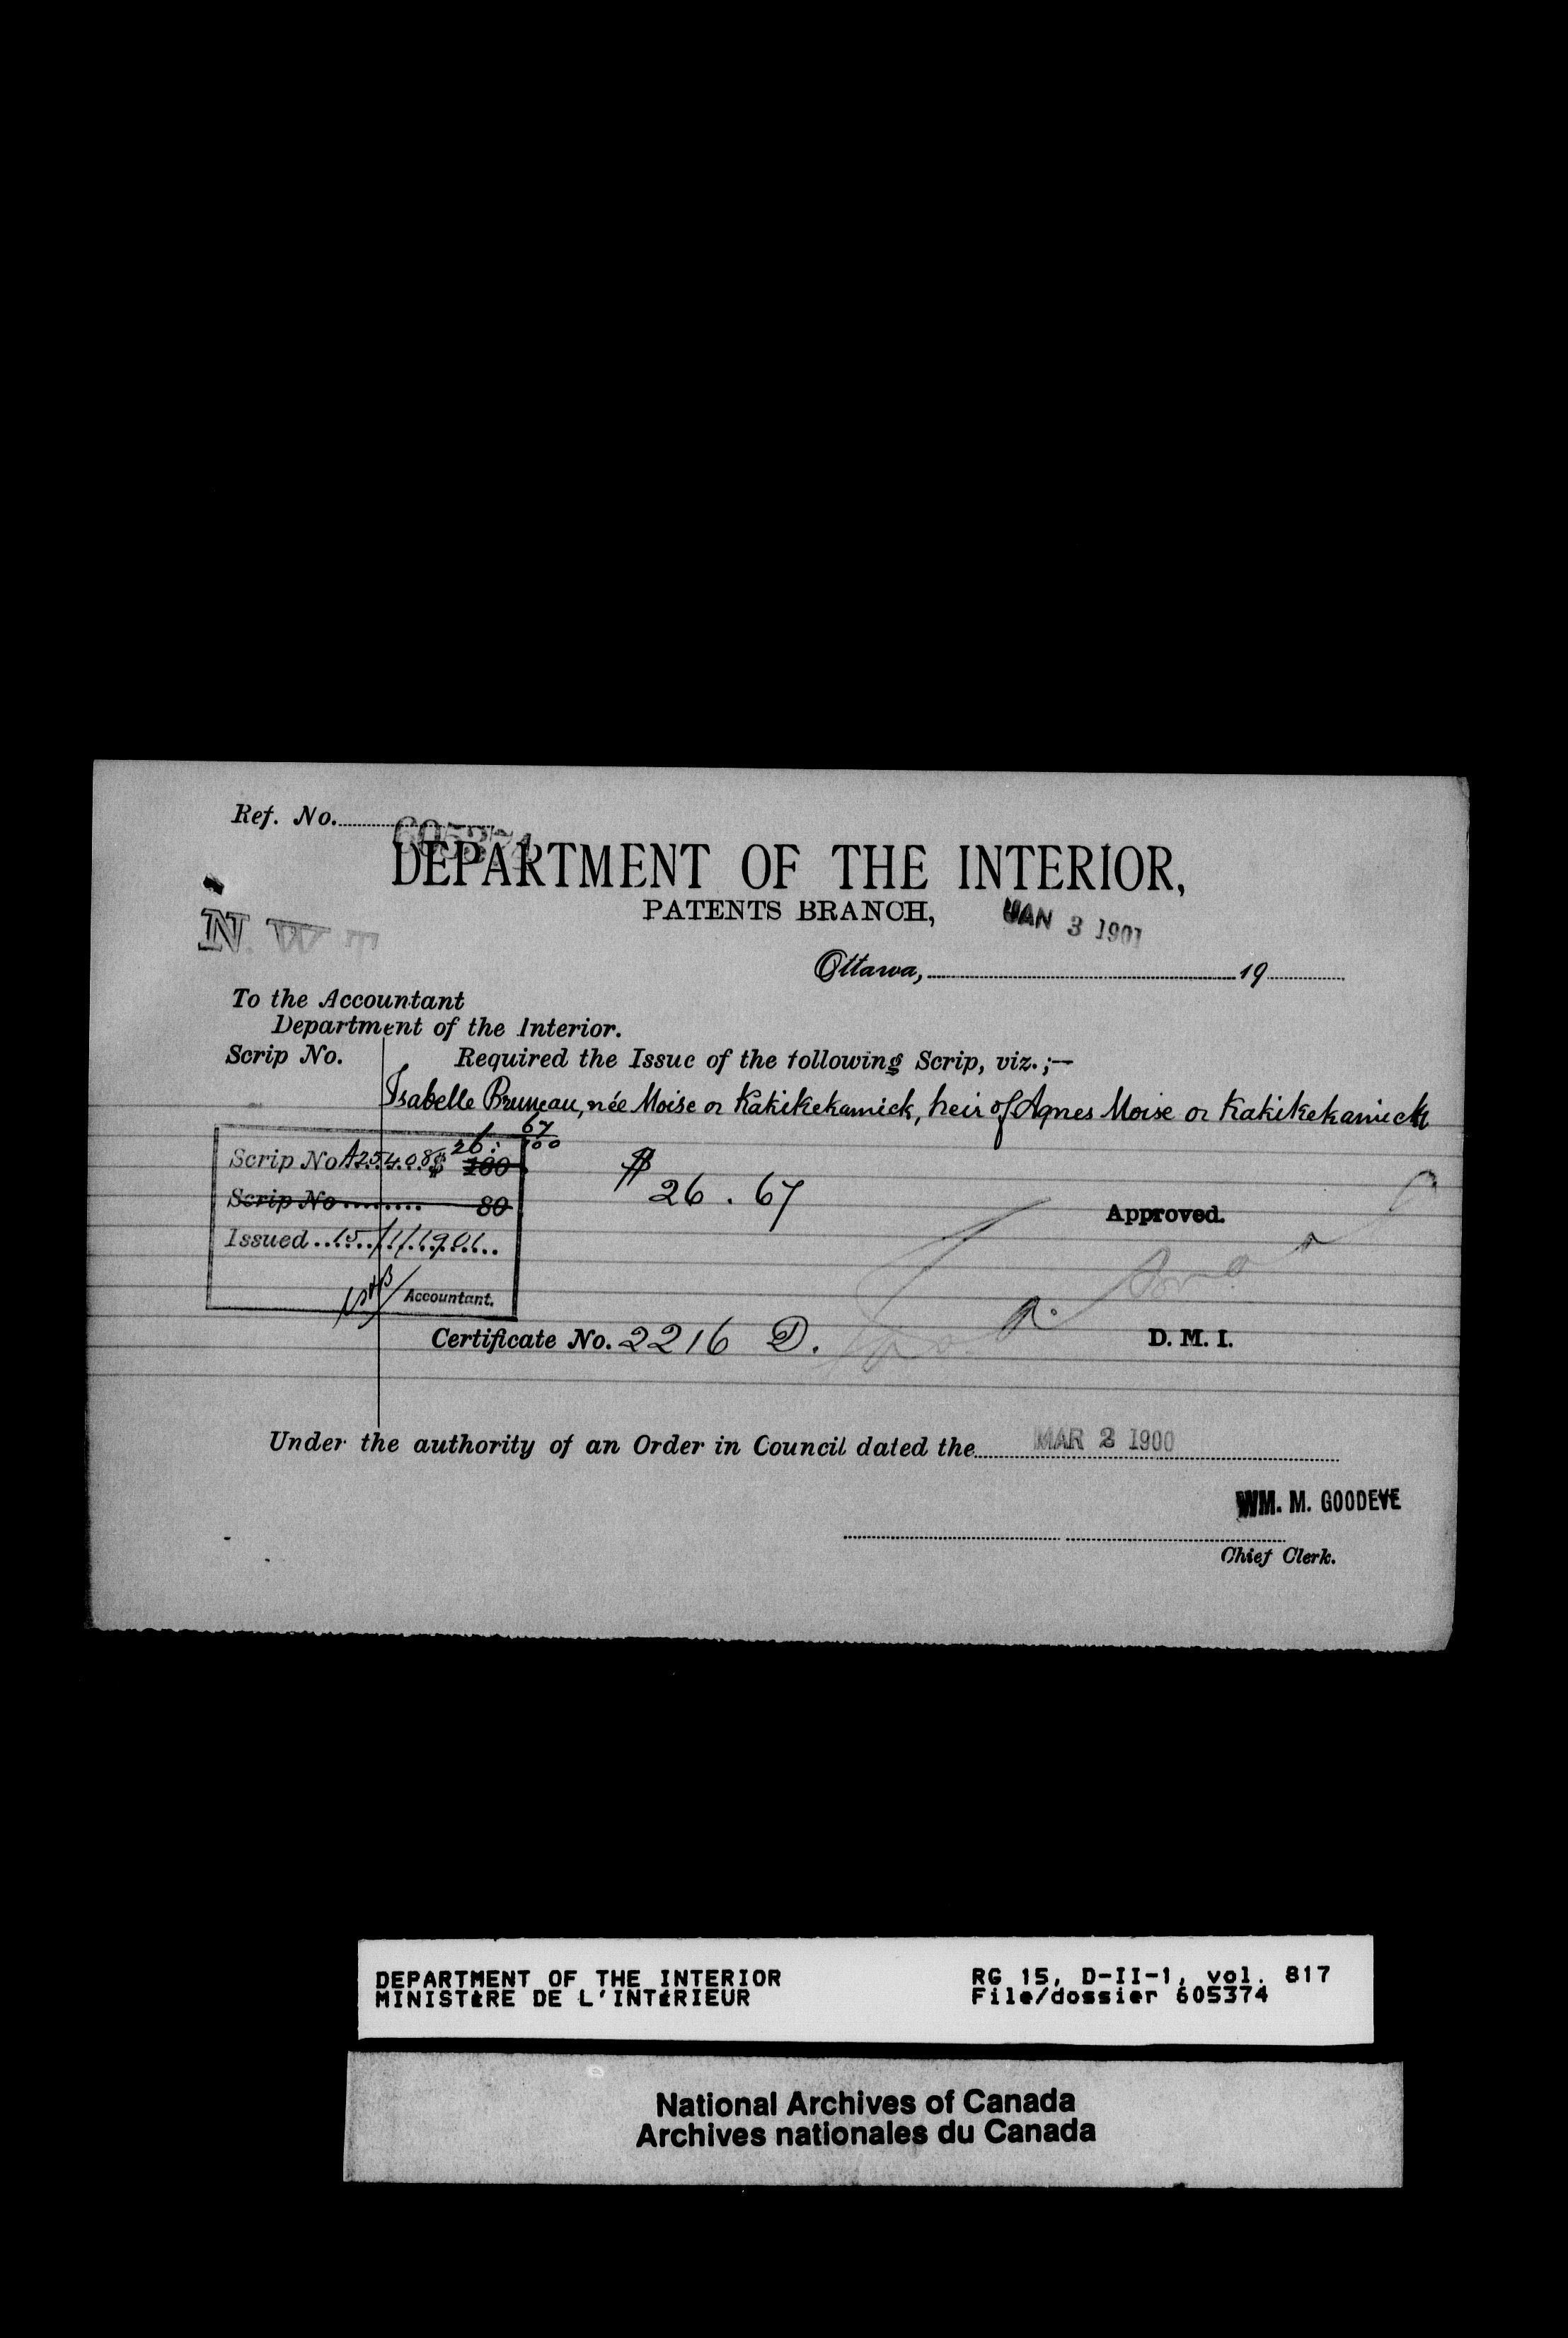 Ref. No. 605374
DEPARTMENT OF THE INTERIOR,
PATENTS BRANCH,
JAN 3 1901
N. W T
Ottawa, 19
To the Accountant
Department of the Interior.
Scrip No. Required the Issue of the following Scrip, viz.;—
Isabelle Bruneau, née Moise or Kakikekamick, heir of Agnes Moise or Kakikekamick
Scrip No A25408 $ 160 26: 67/100
Scrip No 80
$ 26.67
Approved.
Issued 15/1/1901
Accountant.
Certificate No. 2216 D.
D. M. I.
Under the authority of an Order in Council dated the MAR 2 1900
WM. M. GOODEVE
Chief Clerk.
DEPARTMENT OF THE INTERIOR RG 15, D-II-1, vol. 817
MINISTÈRE DE L'INTÉRIEUR File/dossier 605374
National Archives of Canada
Archives nationales du Canada